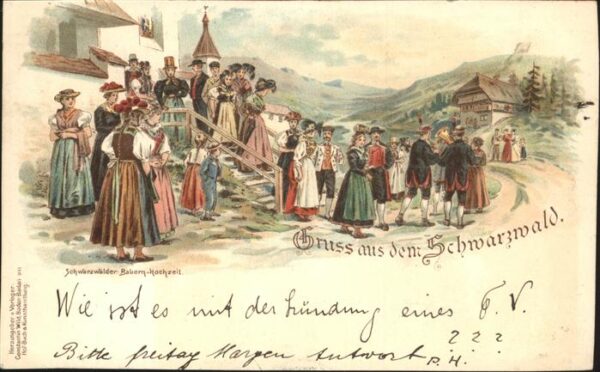 Gruss aus dem Schwarzwald.
Schwarzwälder Bauern-Hochzeit
Herausgeber u Verleger
Constantin Wild, Baden-Baden
Hof-Buch & Kunsthandlung.
Wie ist es mit der Gründung eines F. V.
? ? ?
Bitte freitag Morgen Antwort P. H.